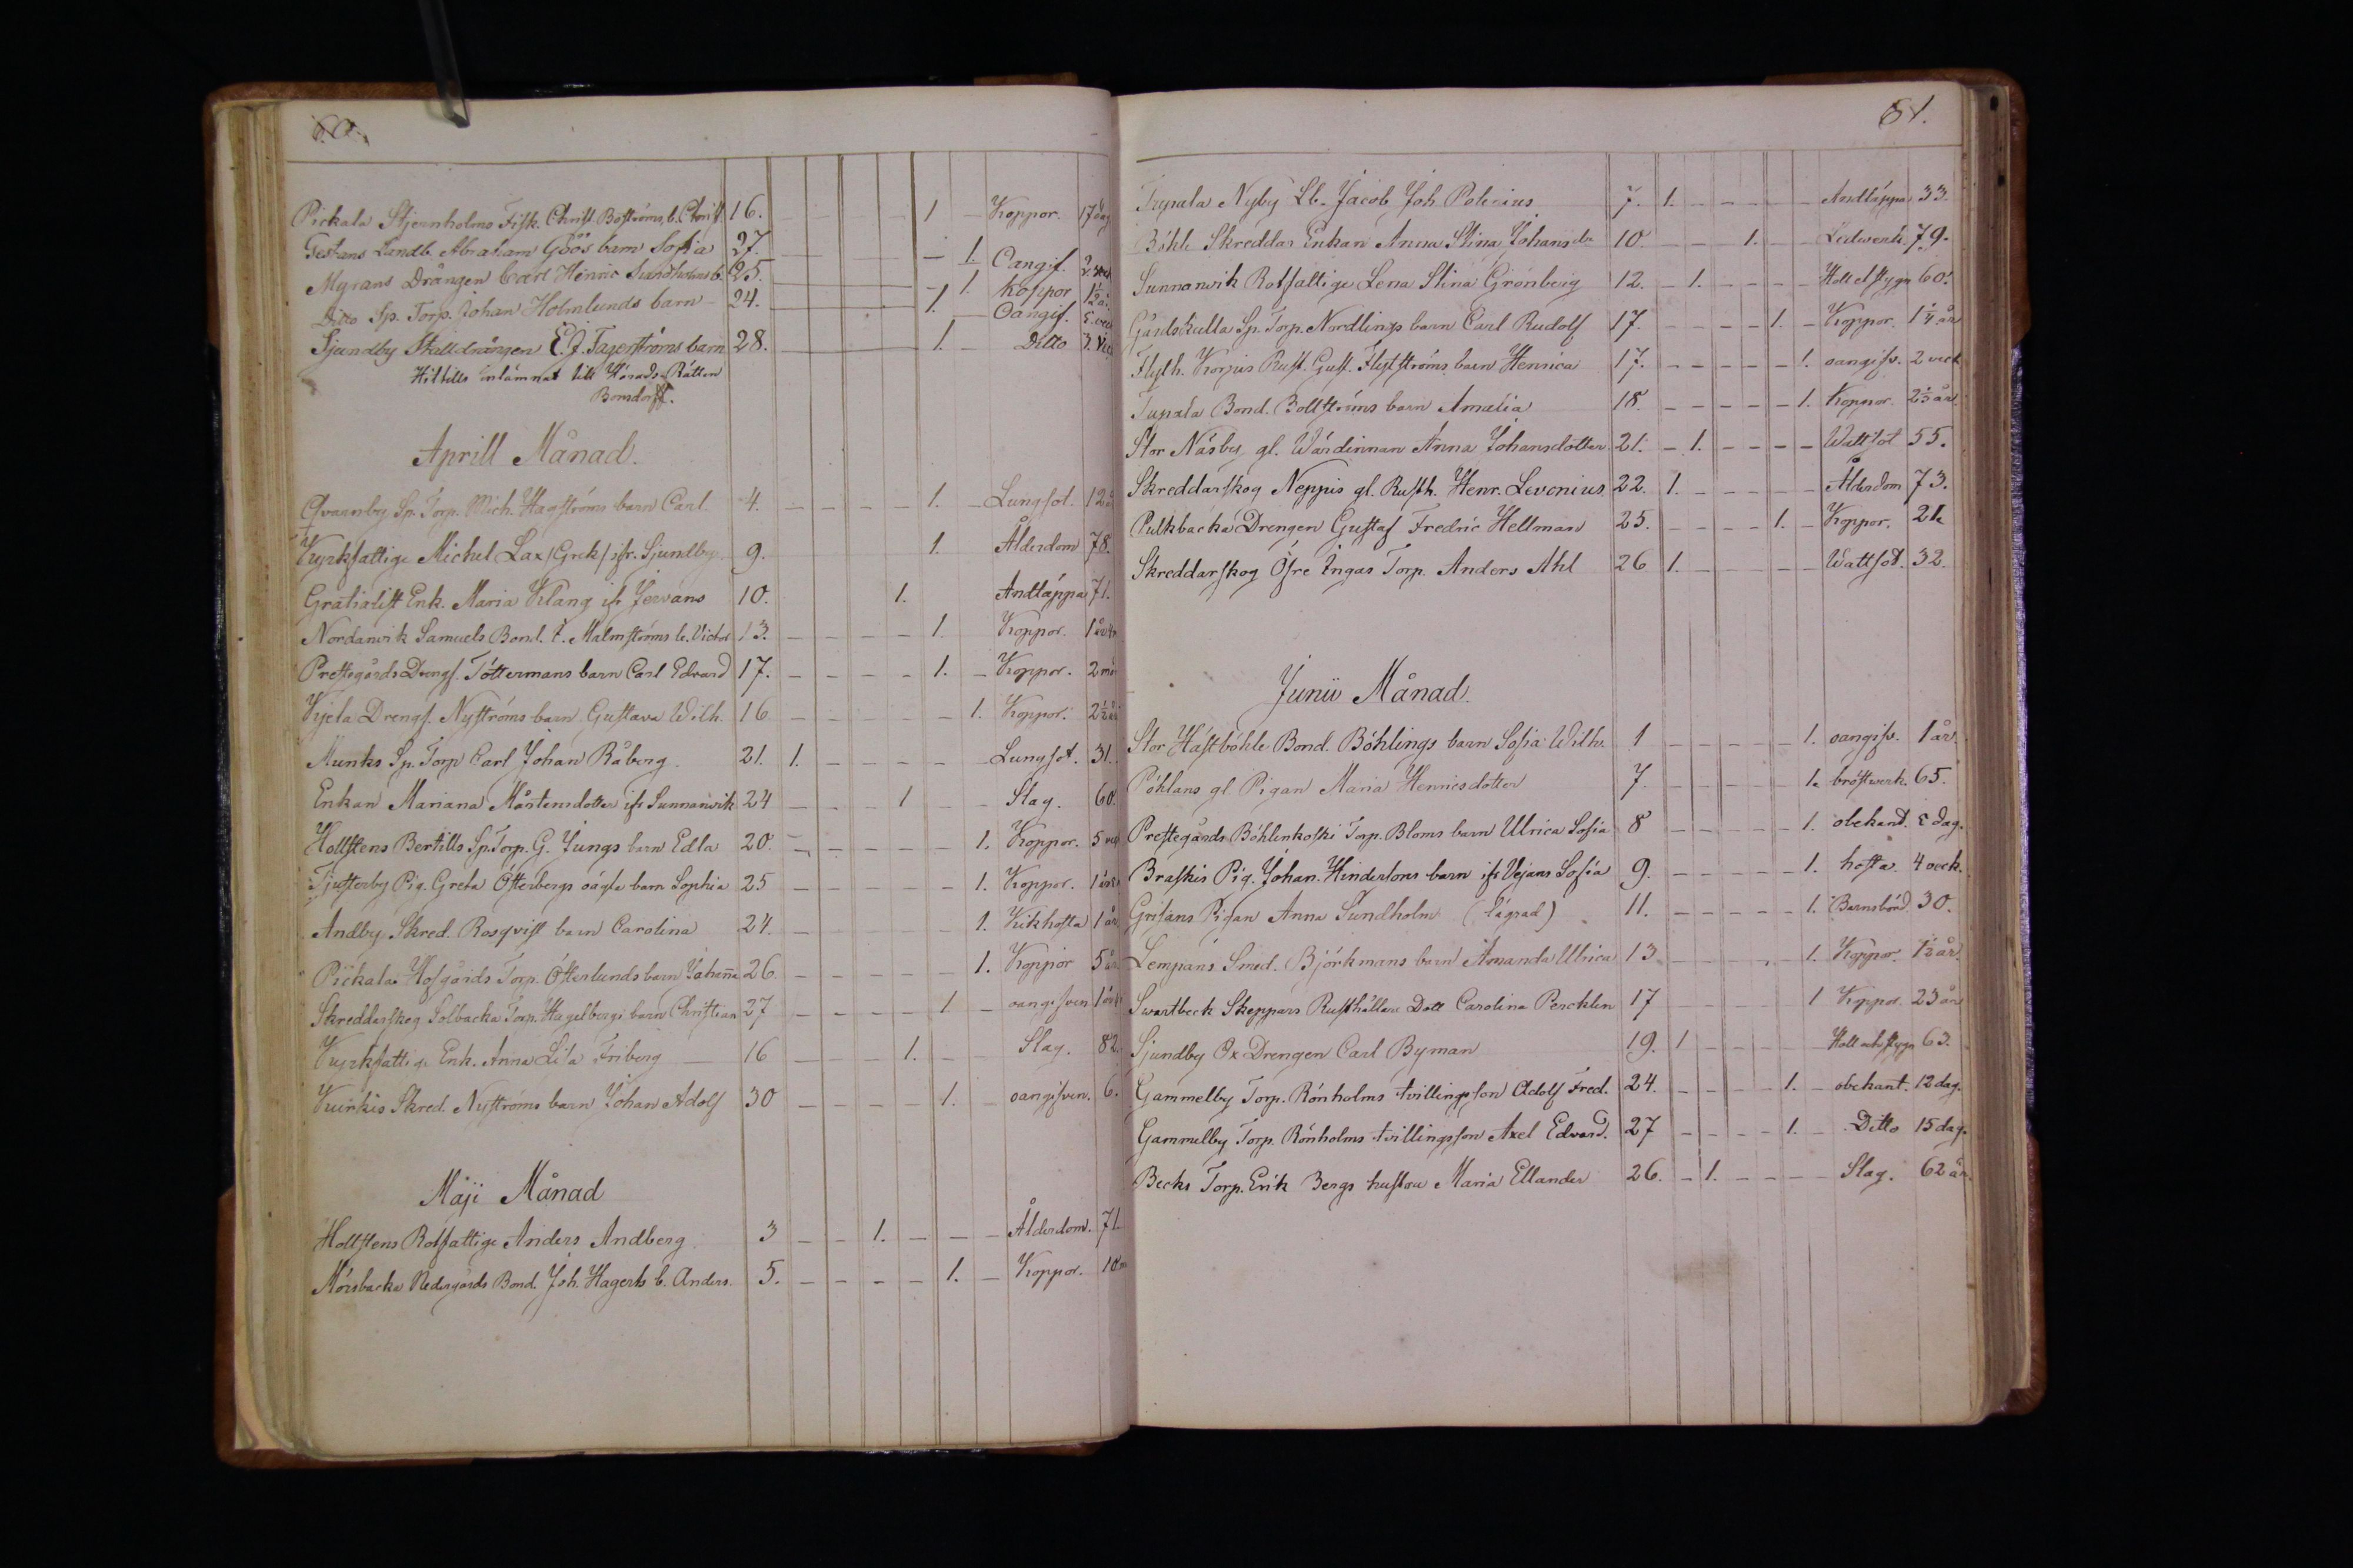 60.
Pickala Stjernholms Fisk. Christ. Boströms b. Christ. 16. 1 Koppor. 17 dag
Testans Landb. Abraham Göös barn Sofia 27. 1. Oangif. 2 veck
Myrans Drängen Carl Henric Sundholms b. 25. 1. Koppor 1½ å.
Ditto Sp. Torp. Johan Holmlunds barn 24. 1. Oangif. 5 veck
Sjundby Stalldrängen E. J. Fagerströms barn 28. 1. Ditto 3. Veck
Hittills inlämnat till Härads Rätten
Bomdorff.
Aprill Månad.
Qvarnby Sp. Torp. Mich. Hagströms barn Carl 4. 1. Lungsot. 12
Kyrkfattige Michel Lax /Grek/ ifr. Sjundby 9. 1. Ålderdom 78.
Gratialist Enk. Maria Klang ifr Jervans 10. 1. Andtäppa 71.
Nordanvik Samuels Bond. C. Malmströms b. Victor 13. 1. Koppor.
Prestegårds Drengs. Töttermans barn Carl Edvard 17. 1. Koppor. 2 mån
Kjela Drengs. Nyströms barn Gustava Wilh. 16 1. Koppor. 2½ år
Munks Sp. Torp Carl Johan Råberg. 21. 1. Lungsot. 31.
Enkan Mariana Mårtensdotter ifr Sunnanvik 24 1 Slag. 60.
Hollstens Bertills Sp. Torp. G. Ljungs barn Edla 20. 1. Koppor. 5 veck
Tjusterby Pig. Greta Österbergs oägta barn Sophia 25 1. Koppor.
Andby Skred. Rosqvist barn Carolina 24. 1. Kikhosta 1 år
Pickala Hofgårds Torp. Österlunds barn Johanna 26. 1. Koppor 5 år
Skreddarskog Solbacka Torp. Hagelbergs barn Christian 27 1 oangifven
Kyrkfattige Enk. Anna Lisa Friberg 16 1. Slag. 82.
Kuirkis Skred. Nyströms barn Johan Adolf 30 1. oangifven. 6.
Maji Månad
Hollstens Rotfattige Anders Andberg. 3 1. Ålderdom. 71.
Mörsbacka Nedergårds Bond. Joh. Hagerts b. Anders. 5. 1. Koppor. 10 m
61.
Nyby Lb. Jacob Joh. Polerius 7. 1. Andtäppa 33.
Böhle Skreddar Enkan Anna Stina Johansdr 10. 1. Ledverk 79.
Sunnanvik Rotfattige Lena Stina Grönberg 12. 1. Håll o stygn 60.
Gårdskulla Sp. Torp. Nordlings barn Carl Rudolf 17. 1. Koppor. 1¼ år
Flyth. Korpis Rust. Gust. Flytströms barn Henrica 17. 1. oangifv. 2 veck
Bond. Bollströms barn Amalia 18. 1. Koppor. 2½ år.
Stor Näsby gl. Wärdinnan Anna Johansdotter 21. 1. Wattsot 55.
Skreddarskog Neppis gl. Rusth. Henr. Levonius 22. 1. Ålderdom 73.
Pulkbacka Drengen Gustaf Fredric Hellman 25. 1. Koppor. 21.
Skreddarskog Öfre Ingas Torp. Anders Ahl 26 1. Wattsot. 32.
Junii Månad.
Stor Hastböhle Bond. Böhlings barn Sofia Wilh. 1 1. oangifv. 1 år.
Pöhlans gl Pigan Maria Henricsdotter 7. 1. bröstverk. 65.
Prestegårds Böhlenkoski Torp. Bloms barn Ulrica Sofia 8 1. obekant. 2 dag.
Braskis Pig. Johan. Hindersons barn ifr Vejans Sofia 9. 1. hosta. 4 veck.
Grisans Pigan Anna Sundholm (lägrad) 11. 1. Barnsbörd 30.
Lempans Smed. Björkmans barn Amanda Ulrica 13 1. Koppor. 1½ år.
Svartbeck Skeppars Rusthållare Dott Carolina Perchlin 17 1 Koppor. 23 år
Sjundby Ox Drengen Carl Byman 19. 1 Håll och stygn 63.
Gammelby Torp. Rönholms tvillingsson Adolf Fred. 24. 1. obekant. 12 dag.
Gammelby Torp. Rönholms tvillingsson Axel Edvard. 27 1. Ditto 15 dag.
Becks Torp. Erik Bergs hustru Maria Ellander 26. 1. Slag. 62 år.